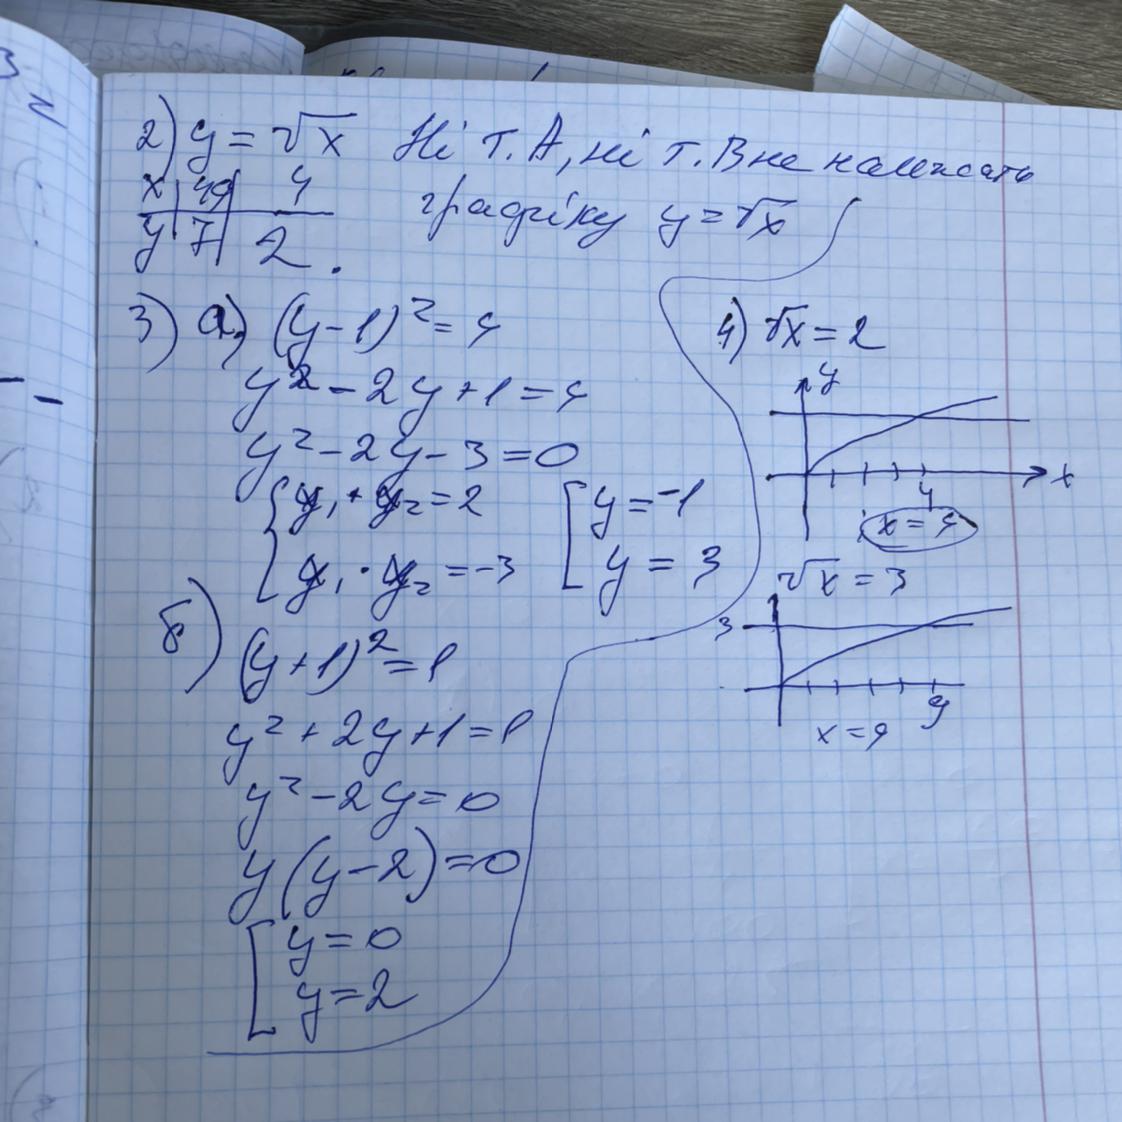 2) y = √x Ні т. А, ні т. В не належать
графіку y = √x
x | 49 | 4
y | 7 | 2 .
3) а) (y - 1)² = 4
y² - 2y + 1 = 4
y² - 2y - 3 = 0
{ y₁ + y₂ = 2
y₁ · y₂ = -3
[ y = -1
y = 3
б) (y + 1)² = 1
y² + 2y + 1 = 1
y² - 2y = 0
y (y - 2) = 0
[ y = 0
y = 2
4) √x = 2
y
x
4
x = 4
√x = 3
3
9
x = 9